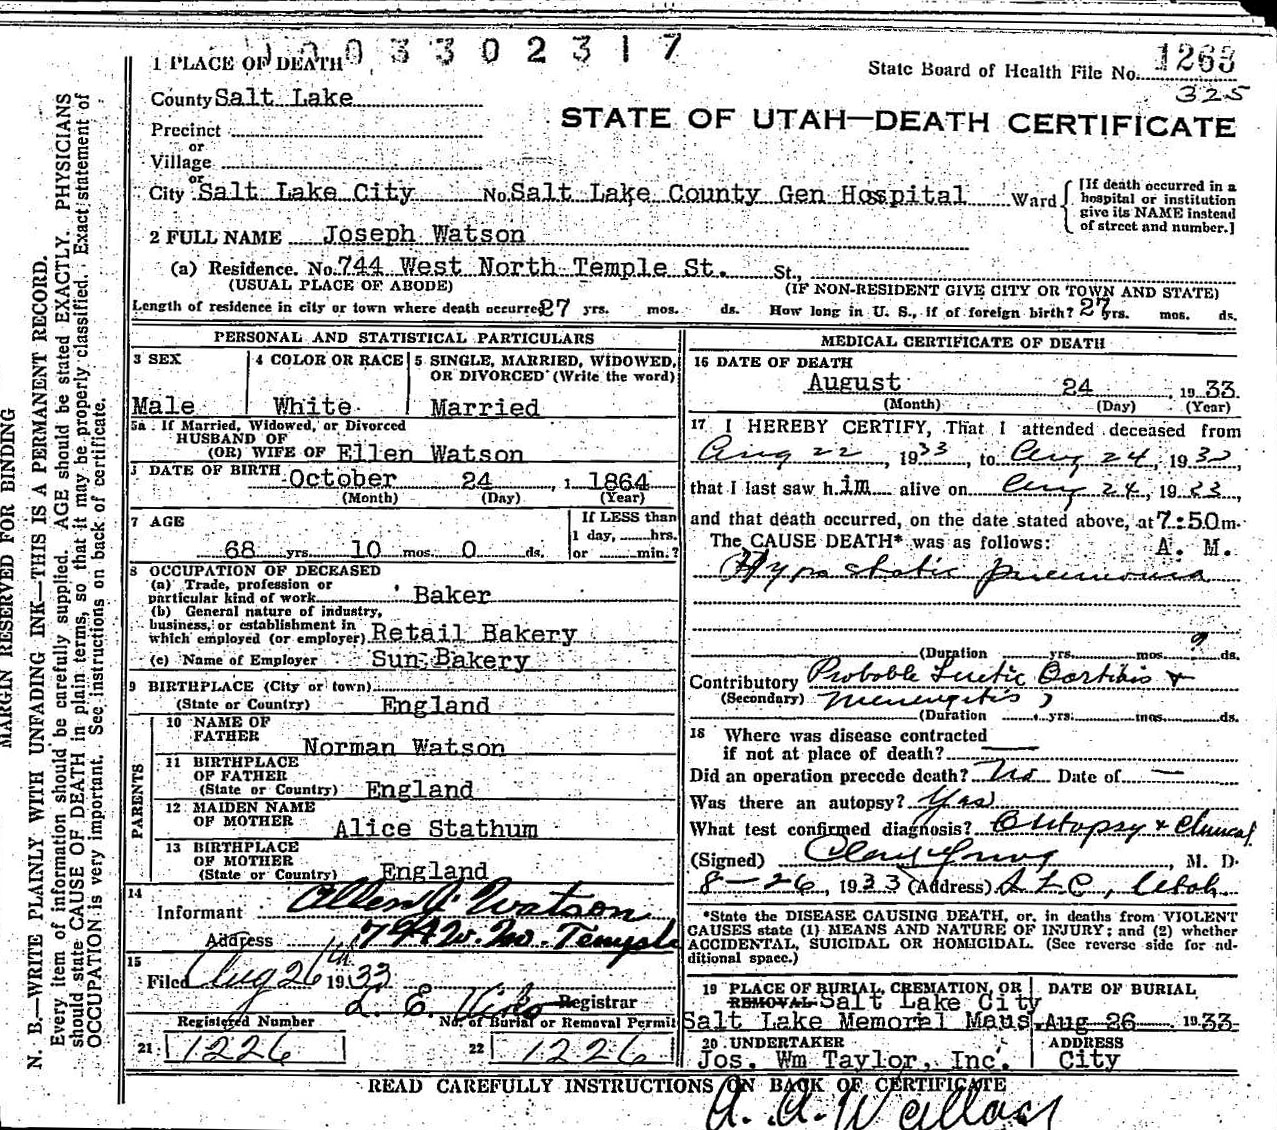 3 3 0 2 3 1 7
1 PLACE OF DEATH
State Board of Health File No. 1263
325
County Salt Lake
STATE OF UTAH—DEATH CERTIFICATE
Precinct
or
Village
or
City Salt Lake City No. Salt Lake County Gen Hospital Ward
[If death occurred in a
hospital or institution
give its NAME instead
of street and number.]
2 FULL NAME Joseph Watson
(a) Residence. No. 744 West North Temple St. St.,
(USUAL PLACE OF ABODE) (IF NON-RESIDENT GIVE CITY OR TOWN AND STATE)
Length of residence in city or town where death occurred 27 yrs. mos. ds. How long in U. S., if of foreign birth? 27 yrs. mos. ds.
PERSONAL AND STATISTICAL PARTICULARS
3 SEX
Male
4 COLOR OR RACE
White
5 SINGLE, MARRIED, WIDOWED,
OR DIVORCED (Write the word)
Married
5a If Married, Widowed, or Divorced
HUSBAND OF
(OR) WIFE OF Ellen Watson
DATE OF BIRTH October 24, 1864
(Month) (Day) (Year)
7 AGE
68 yrs. 10 mos. 0 ds.
If LESS than
1 day, hrs.
or min.?
8 OCCUPATION OF DECEASED
(a) Trade, profession or
particular kind of work Baker
(b) General nature of industry,
business, or establishment in
which employed (or employer) Retail Bakery
(c) Name of Employer Sun Bakery
9 BIRTHPLACE (City or town)
(State or Country) England
PARENTS
10 NAME OF
FATHER
Norman Watson
11 BIRTHPLACE
OF FATHER
(State or Country) England
12 MAIDEN NAME
OF MOTHER Alice Stathum
13 BIRTHPLACE
OF MOTHER
(State or Country) England
14
Informant Allen J. Watson
Address 744 W. No. Temple
15
Filed Aug 26th 1933
L. E. Registrar
Registered Number No. of Burial or Removal Permit
21 1226 22 1226
MEDICAL CERTIFICATE OF DEATH
16 DATE OF DEATH
August 24, 1933
(Month) (Day) (Year)
17 I HEREBY CERTIFY, That I attended deceased from
Aug 22, 1933, to Aug 24, 1933,
that I last saw him alive on Aug 24, 1933,
and that death occurred, on the date stated above, at 7:50 m.
The CAUSE DEATH* was as follows: A. M.
Hypostatic pneumonia
(Duration yrs. mos. ? ds.
Contributory Probable Luetic Aortitis &
(Secondary) Meningitis
(Duration yrs. mos. ds.
18 Where was disease contracted
if not at place of death?
Did an operation precede death? No Date of —
Was there an autopsy? Yes
What test confirmed diagnosis? Autopsy & Clinical
(Signed) M. D.
8-26, 1933 (Address) SLC, Utah
*State the DISEASE CAUSING DEATH, or, in deaths from VIOLENT
CAUSES state (1) MEANS AND NATURE OF INJURY; and (2) whether
ACCIDENTAL, SUICIDAL OR HOMICIDAL. (See reverse side for ad-
ditional space.)
19 PLACE OF BURIAL, CREMATION, OR
REMOVAL Salt Lake City
Salt Lake Memorel Maus.
DATE OF BURIAL
Aug 26 1933
20 UNDERTAKER
Jos. Wm Taylor, Inc.
ADDRESS
City
READ CAREFULLY INSTRUCTIONS ON BACK OF CERTIFICATE
A. A. Wallace
MARGIN RESERVED FOR BINDING
N. B.—WRITE PLAINLY WITH UNFADING INK—THIS IS A PERMANENT RECORD.
Every item of information should be carefully supplied. AGE should be stated EXACTLY. PHYSICIANS
should state CAUSE OF DEATH in plain terms, so that it may be properly classified. Exact statement of
OCCUPATION is very important. See instructions on back of certificate.